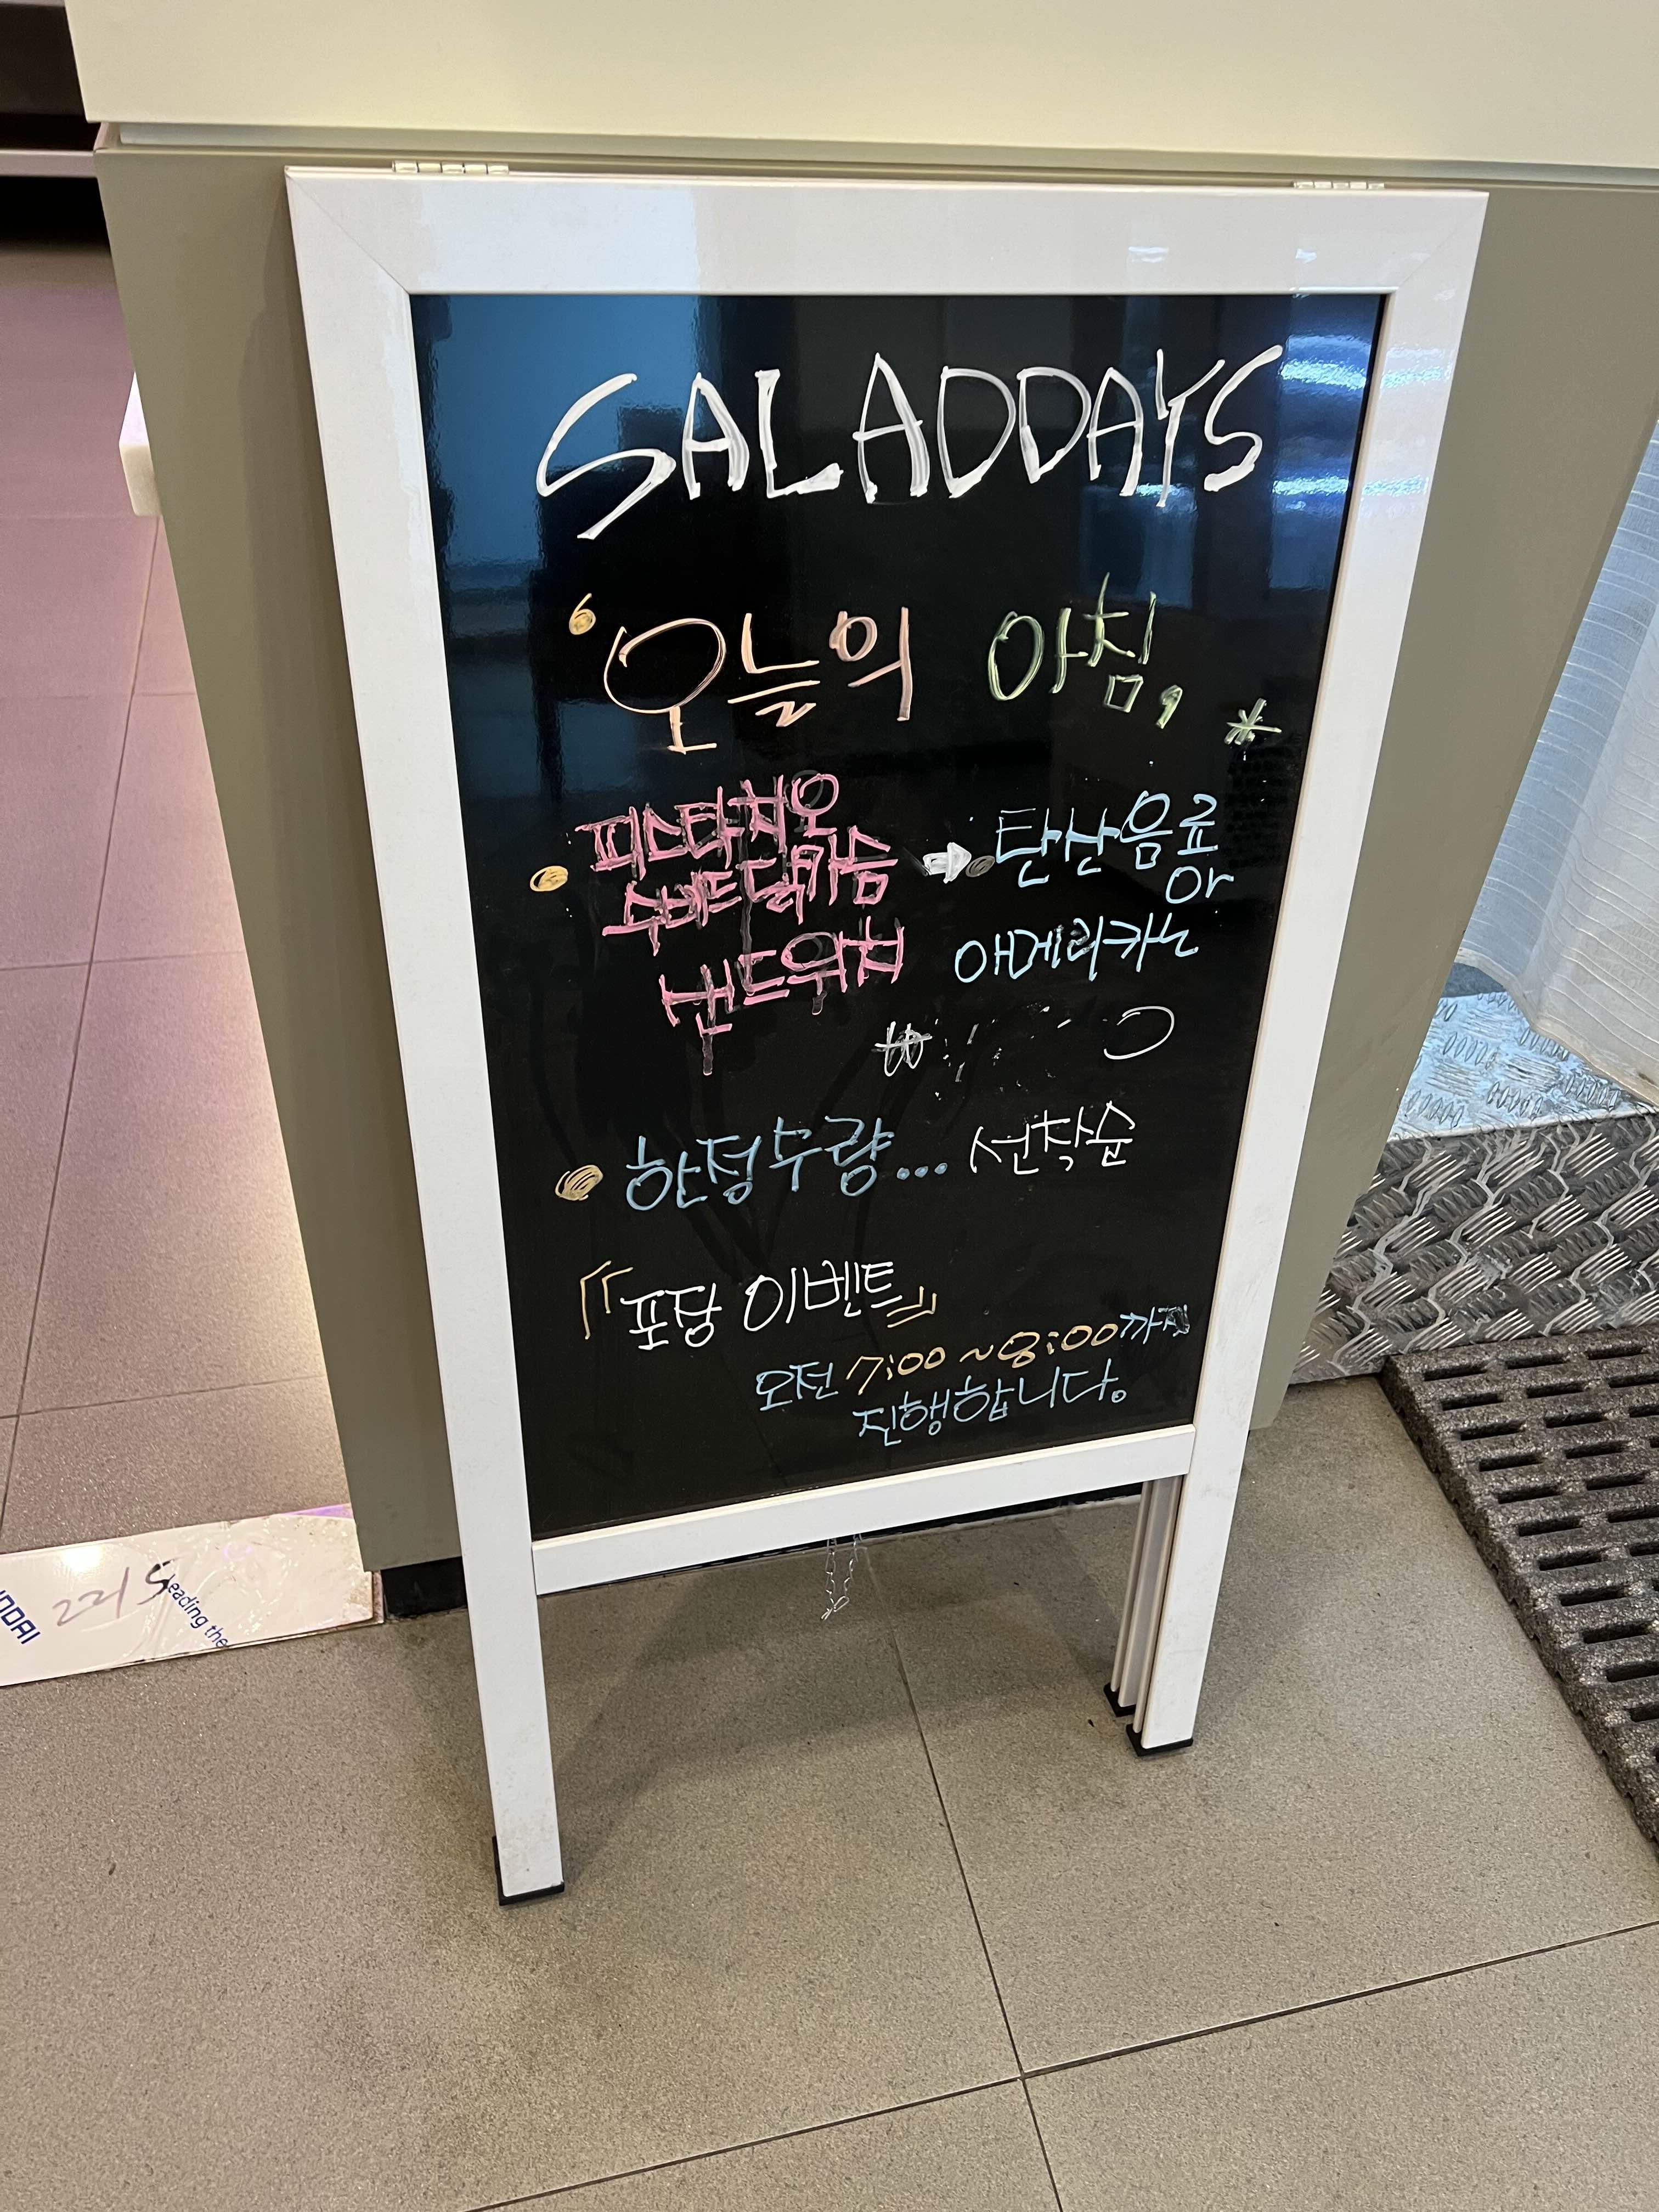 SALADDAYS
‘오늘의 아침,
피스타치오
수비드닭가슴
샌드위치
➡ 탄산음료
or
아메리카노
₩
한정수량... 선착순
『포탕 이벤트』
오전 7:00 ~ 8:00까지
진행합니다.
eading the